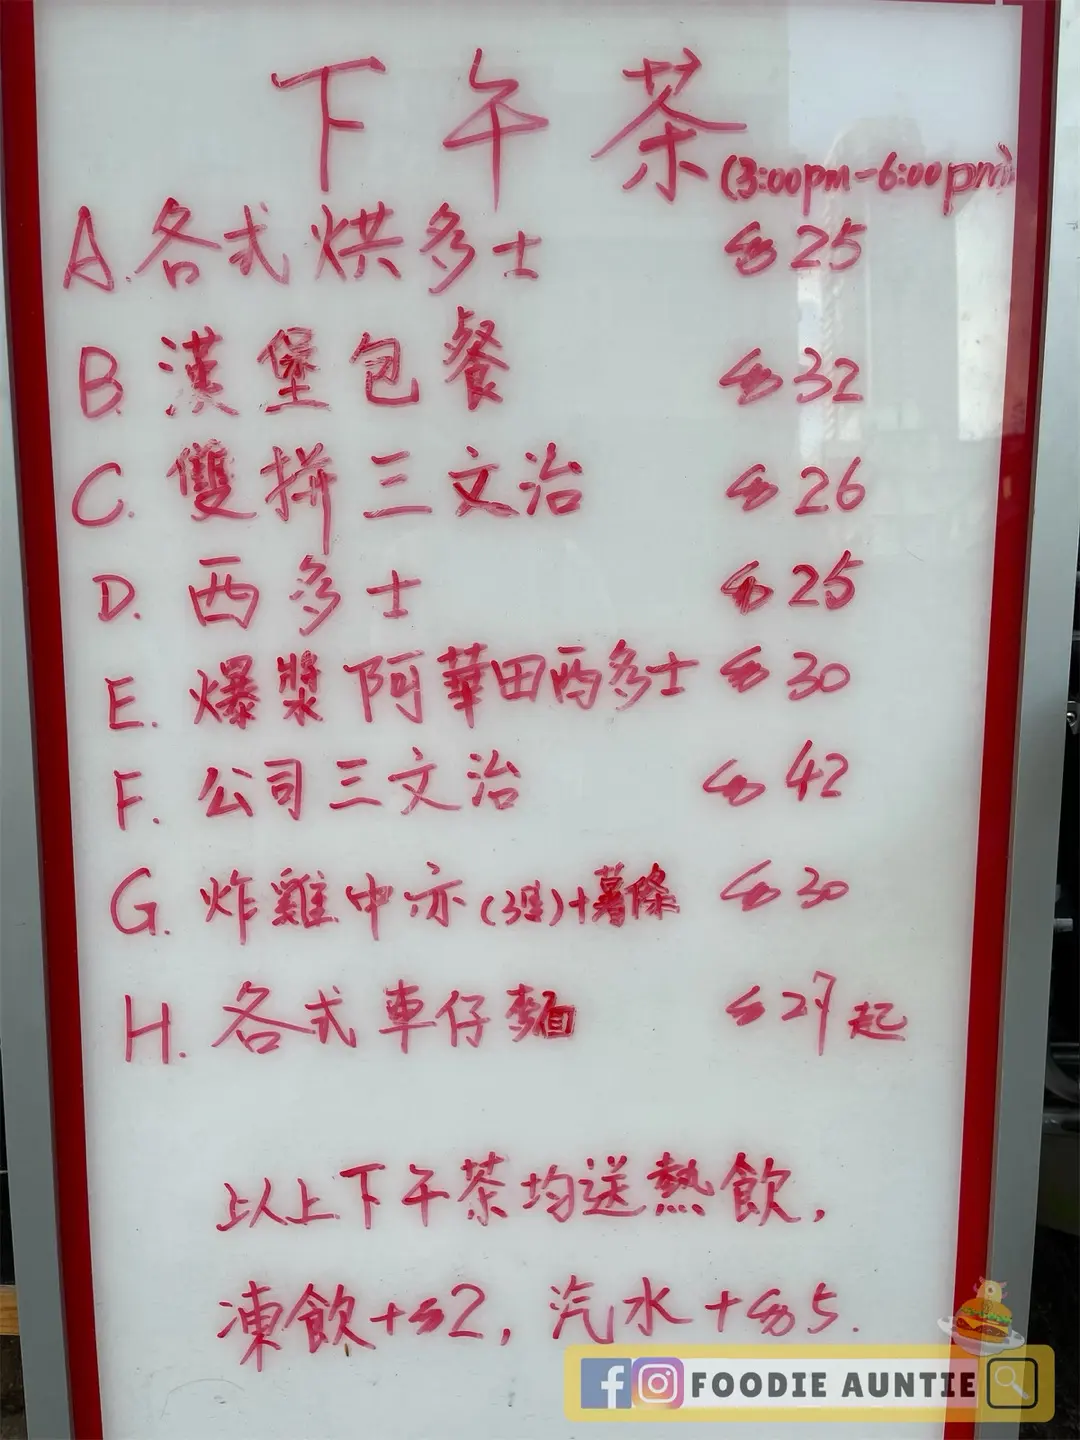 下午茶 (3:00pm-6:00pm)
A. 各式烘多士 $25
B. 漢堡包餐 $32
C. 雙拼三文治 $26
D. 西多士 $25
E. 爆漿阿華田西多士 $30
F. 公司三文治 $42
G. 炸雞中亦(3隻)+薯條 $30
H. 各式車仔麵 $27起
以上下午茶均送熱飲,
凍飲+$2, 汽水+$5.
FOODIE AUNTIE